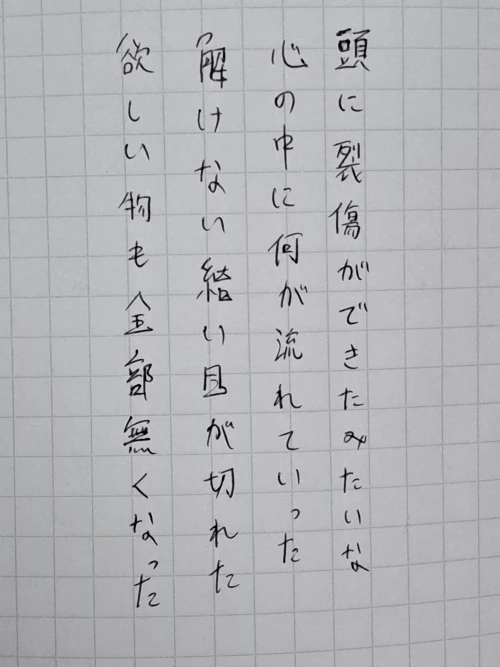 頭に裂傷ができたみたいな
心の中に何が流れていった
解けない結い目が切れた
欲しい物も全部無くなった